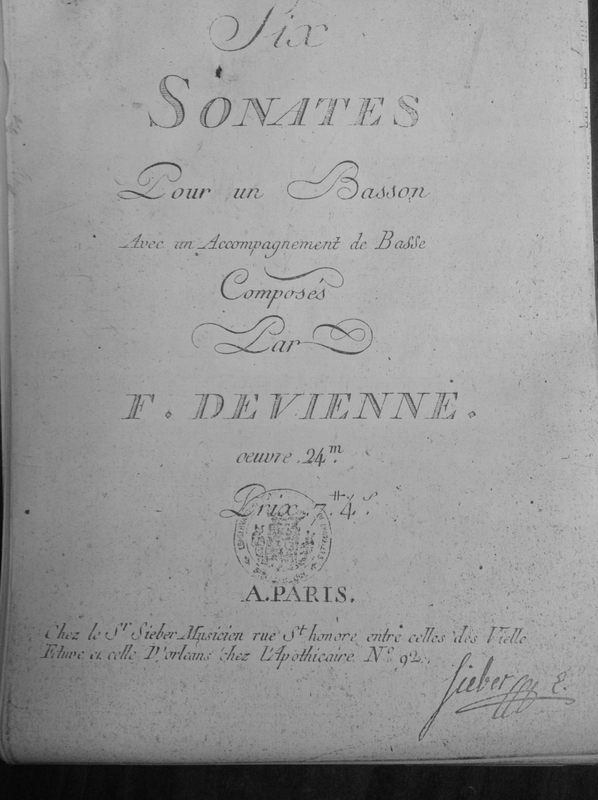 Six
SONATES
Pour un Basson
Avec un Accompagnement de Basse
Composés
Par
F. DEVIENNE.
oeuvre 24.m
Prix 7.# 4.s
A. PARIS.
Chez le Sr Sieber Musicien rue St honore entre celles des Vielle
Etuve et celle D'orleans chez L'Apothicaire No. 92.
Sieber